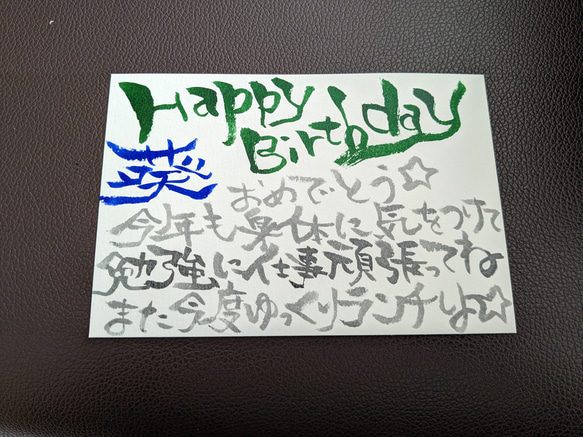 Happy
Birthday
葵
おめでとう☆
今年も身体に気をつけて
勉強に仕事頑張ってね
また今度ゆっくりランチしよ☆